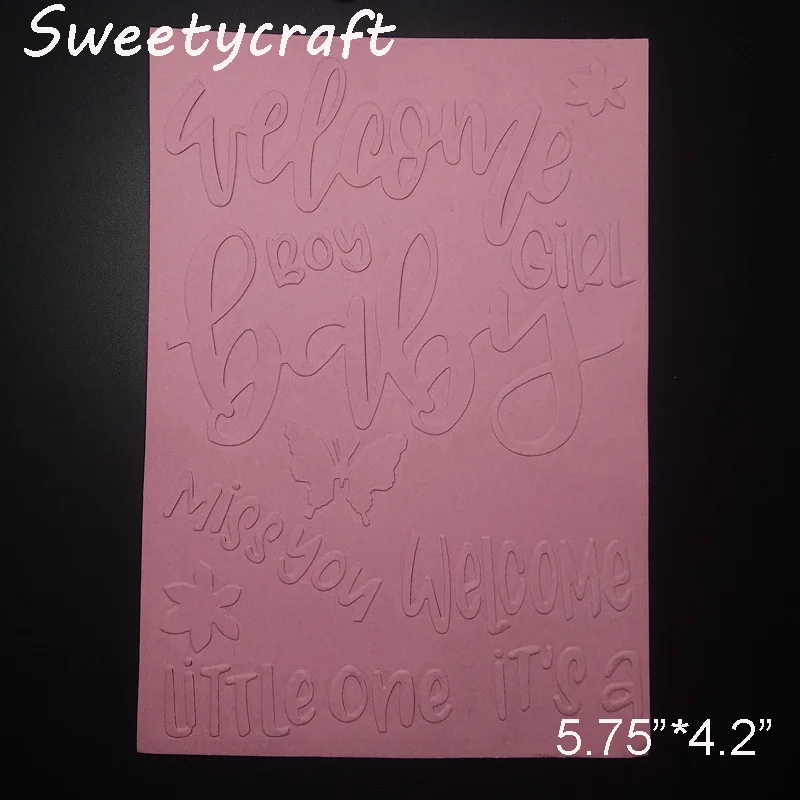 Sweetycraft
welcome
BOY
GiRL
baby
Miss you
WelCOMe
LiTTLe one
iT'S a
5.75”*4.2”